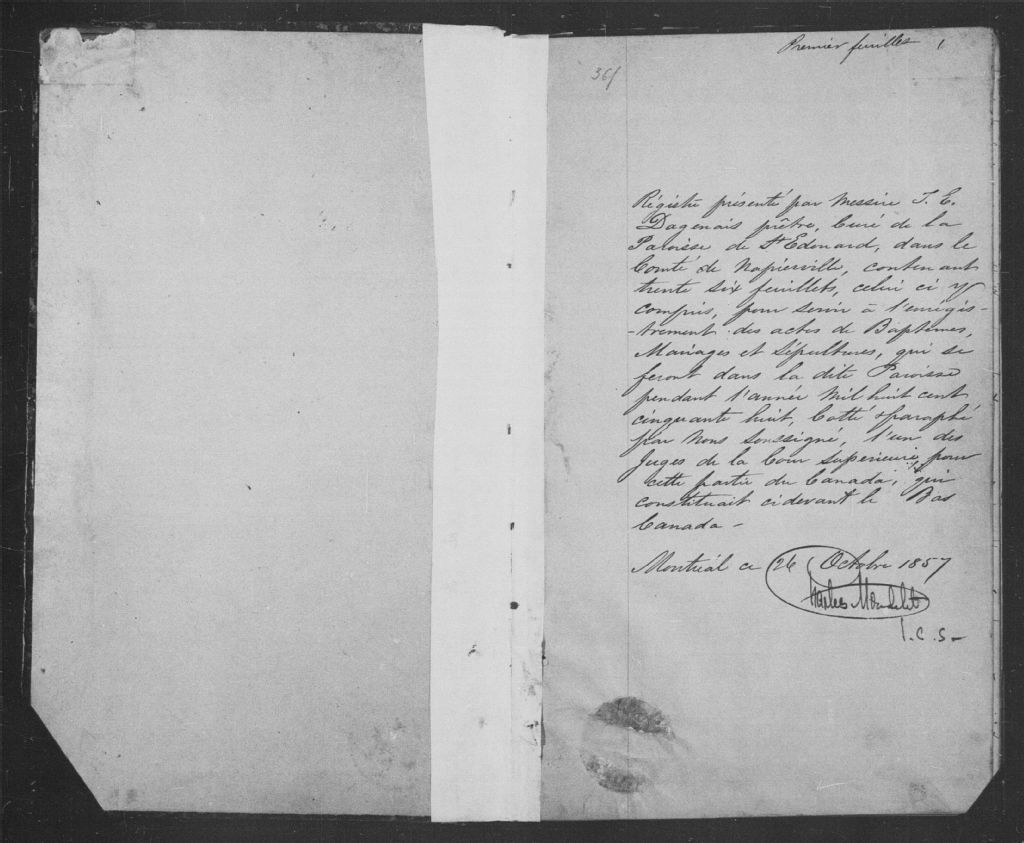 Premier feuillet 1
36f
Régistre présenté par Messire J. E.
Dagenais prêtre, Curé de la
Paroisse de St Edouard, dans le
Comté de Napierville, contenant
trente six feuillets, celui ci y
compris, pour servir à l'enrégis-
-trement des actes de Baptêmes,
Mariages et Sépultures, qui se
feront dans la dite Paroisse
pendant l'année Mil huit cent
cinquante huit, Cotté & paraphé
par Nous Soussigné, l'un des
Juges de la Cour Superieure, pour
cette partie du Canada, qui
constituait cidevant le Bas
Canada -
Montréal ce 26 Octobre 1857
Charles Mondelet
J. C. S -